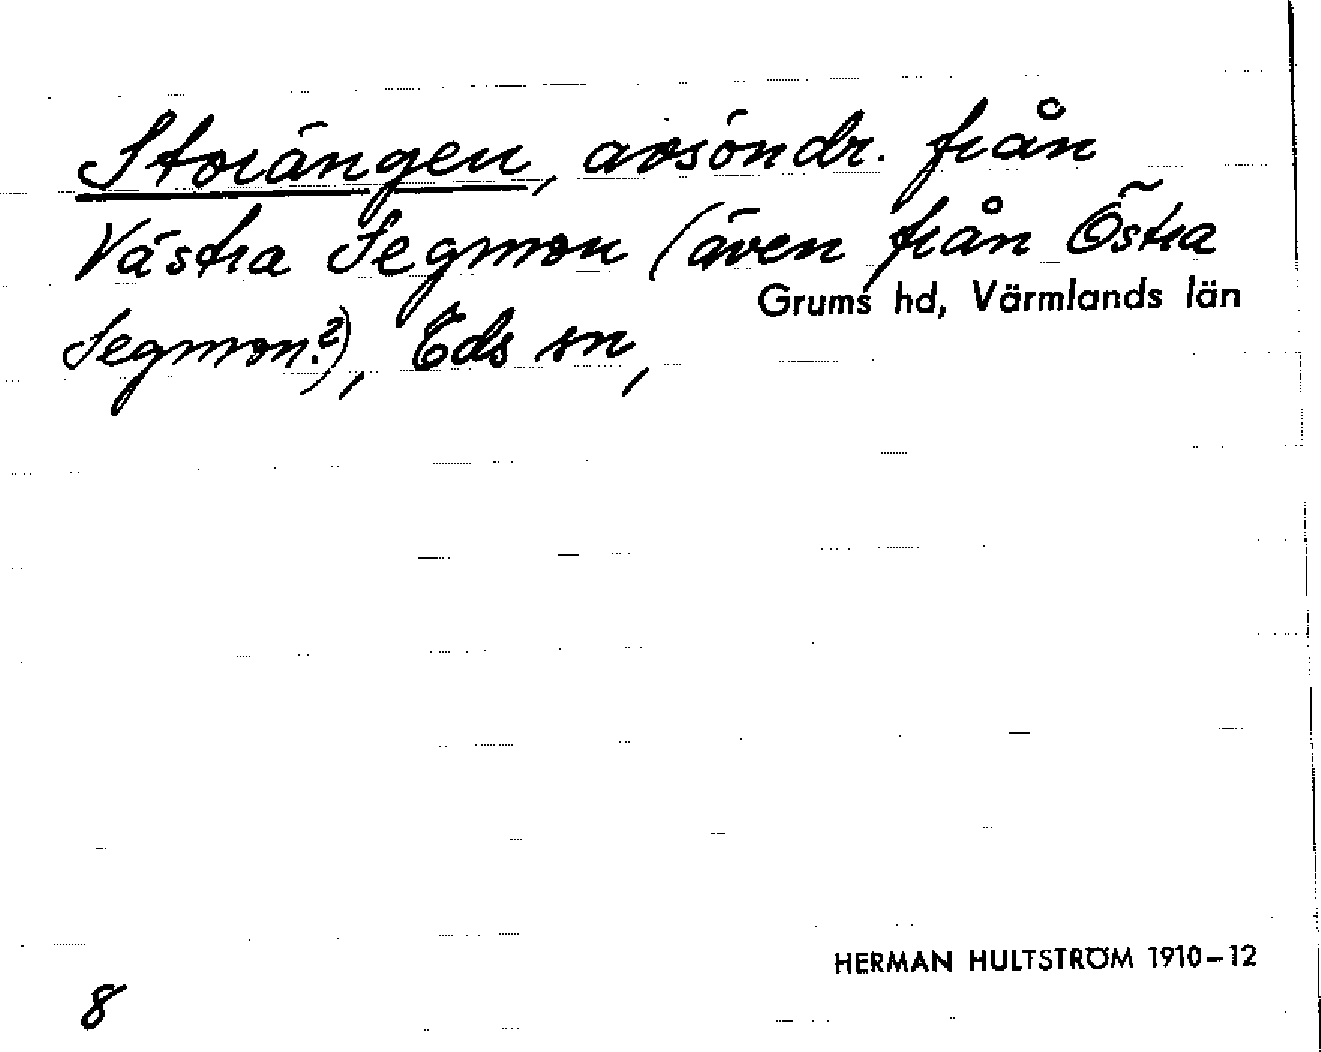 Storängen, avsöndr. från
Västra Segmon (även från Östra
Grums hd, Värmlands län
Segmon?), Eds sn,
HERMAN HULTSTRÖM 1910–12
8